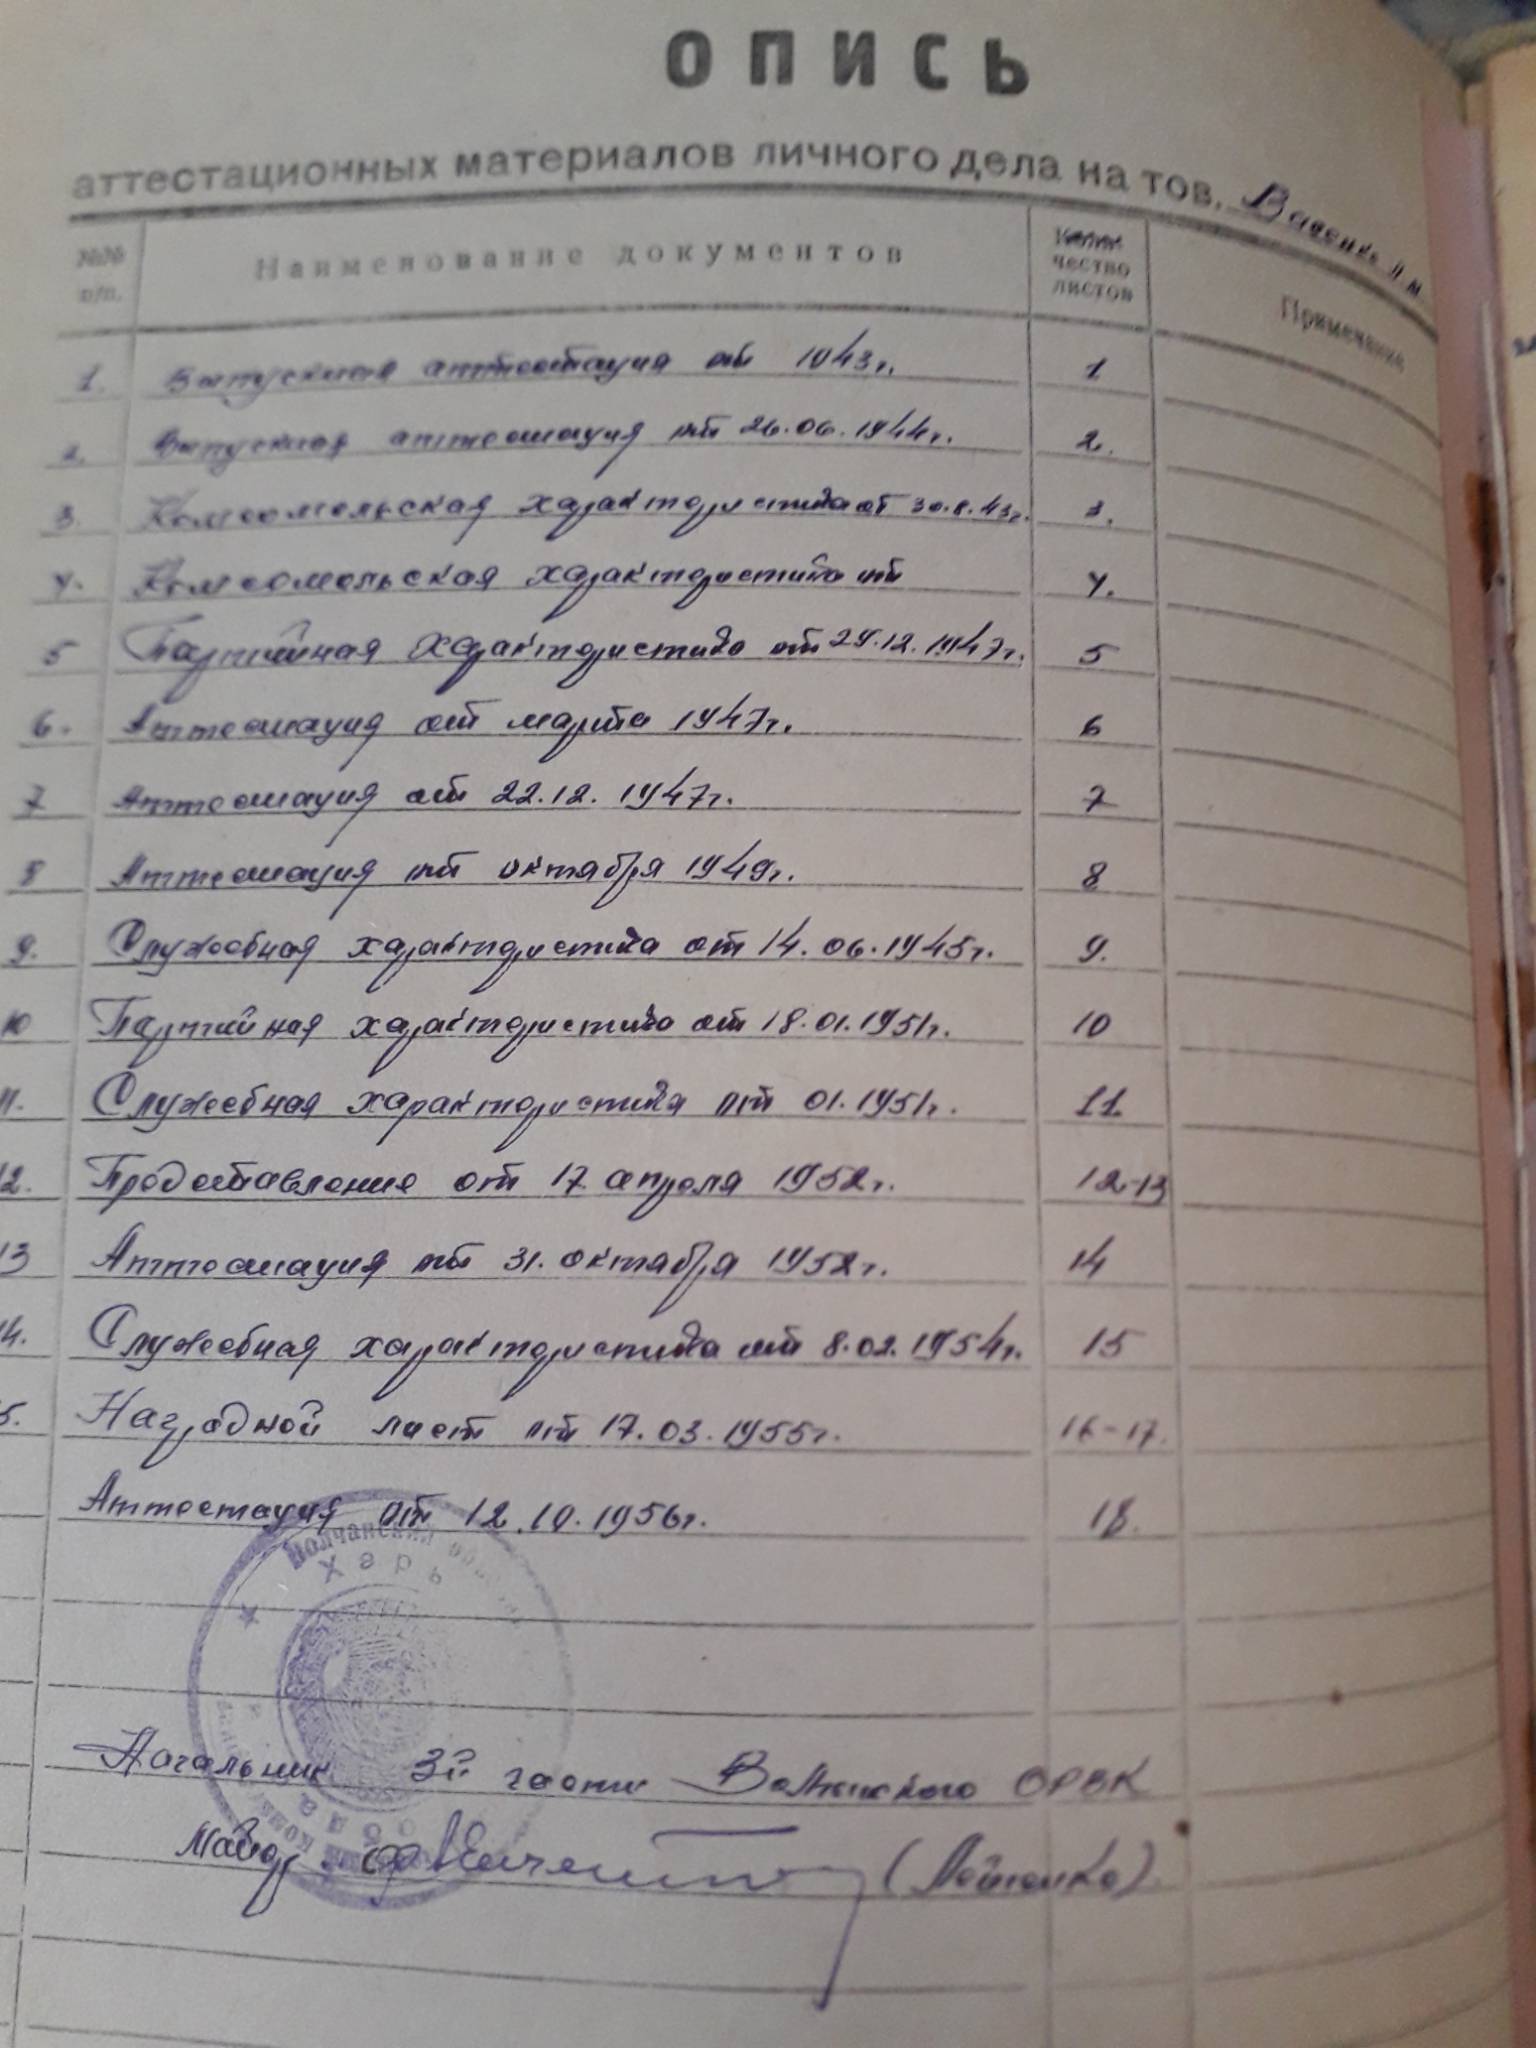 ОПИСЬ
аттестационных материалов личного дела на тов.
№№ п/п. Наименование документов Количество листов Примечание
1. Выпускная аттестация от 1943г. 1
2. Выпускная аттестация от 26.06.1944г. 2.
3. Комсомольская характеристика от 30.8.43г. 3.
4. Комсомольская характеристика от 4.
5 Партийная характеристика от 29.12.1947г. 5
6. Аттестация от марта 1947г. 6
7 Аттестация от 22.12.1947г. 7
8 Аттестация от октября 1949г. 8
9. Служебная характеристика от 14.06.1945г. 9.
10 Партийная характеристика от 18.01.1951г. 10
11. Служебная характеристика от 01.1951г. 11
12. Представление от 17 апреля 1952г. 12-13
13 Аттестация от 31. октября 1952г. 14
14. Служебная характеристика от 8.02.1954г. 15
5. Наградной лист от 17.03.1955г. 16-17.
Аттестация от 12.10.1956г. 18.
Волчанский
Харь
Начальник 3й части ОРВК
Майор